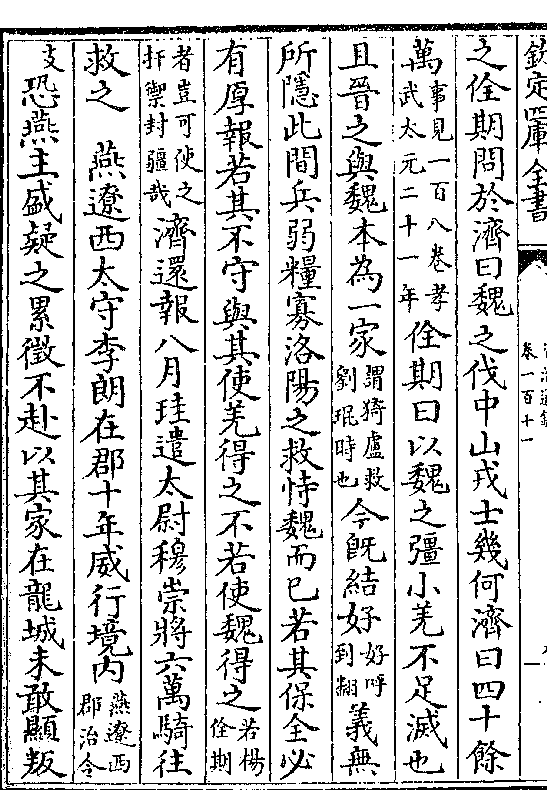 欽定四庫全書
卷一百十一
之佺期問於濟曰魏之伐中山戎士幾何濟曰四十餘
萬事見一百八卷孝武太元二十一年佺期曰以魏之彊小羌不足滅也
且晉之與魏本為一家謂猗盧救劉琨時也今既結好好呼到翻義無
所隱此間兵弱糧寡洛陽之救恃魏而已若其保全必
有厚報若其不守與其使羌得之不若使魏得之若楊佺期
者豈可使之扞禦封疆哉濟還報八月珪遣太尉穆崇將六萬騎往
救之 燕遼西太守李朗在郡十年威行境內燕遼西郡治令
支恐燕主盛疑之累徵不赴以其家在龍城未敢顯叛